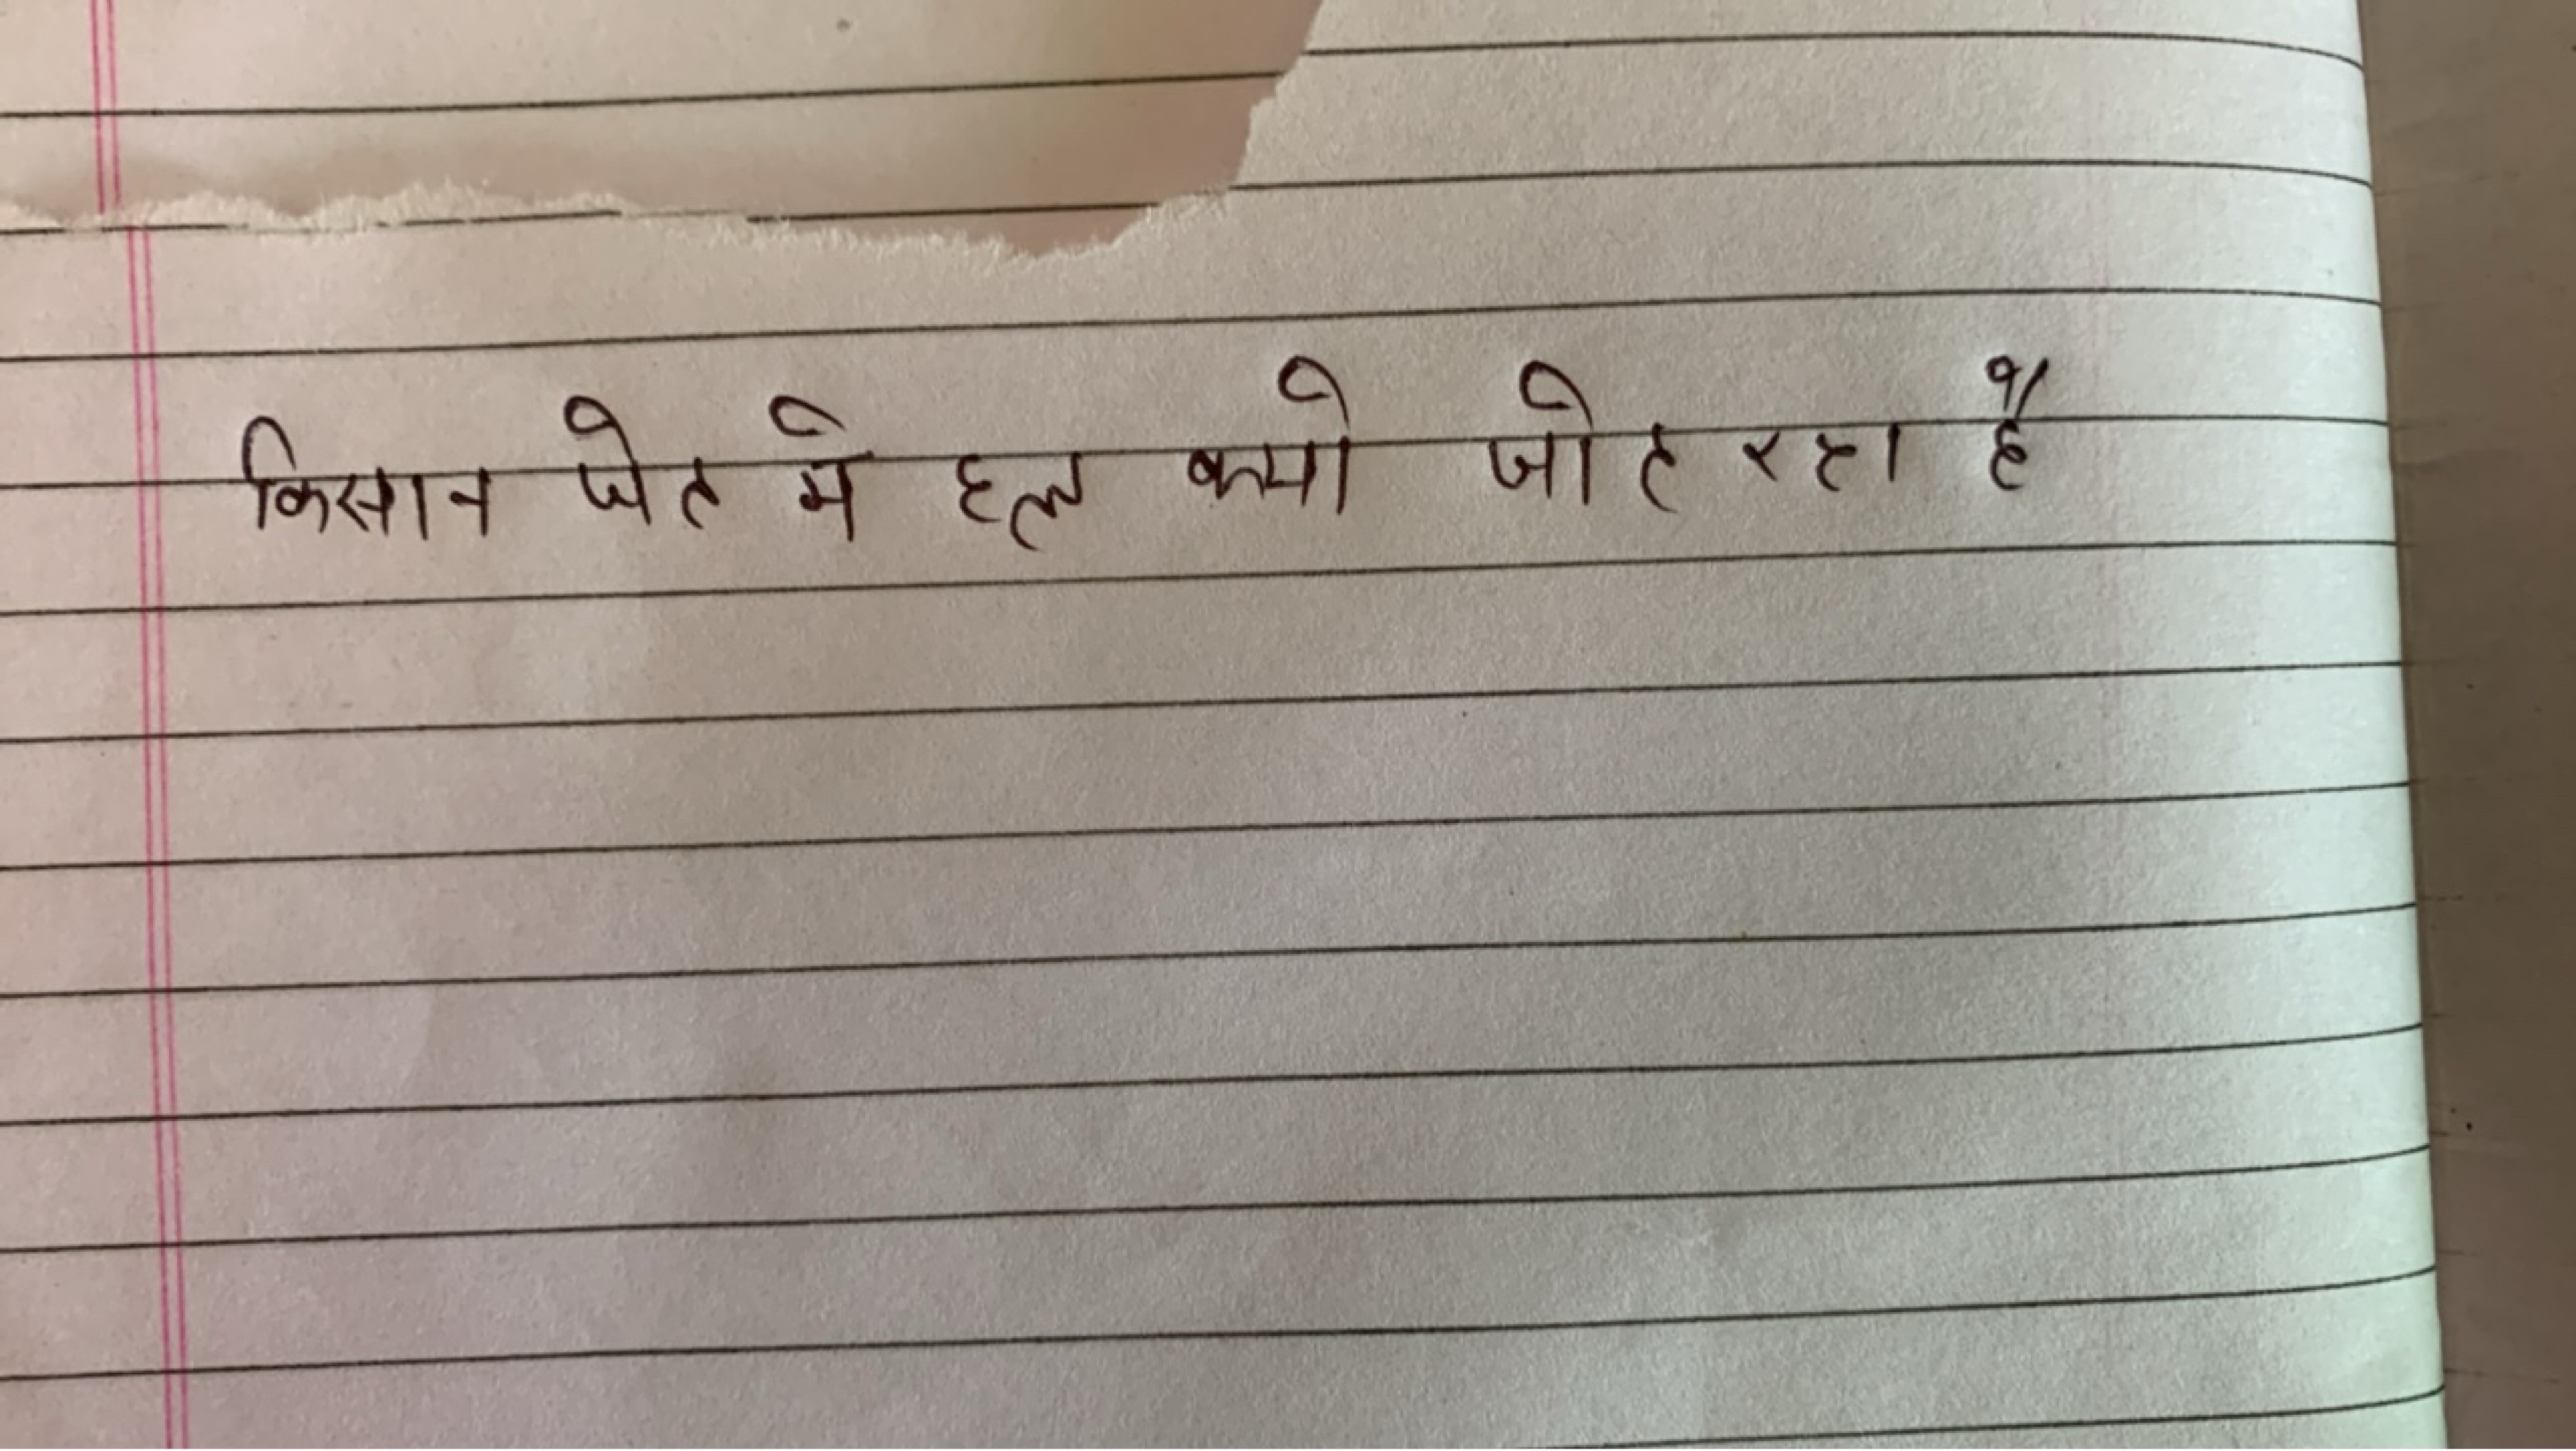 किसान खेत मे हल क्यो जोत रहा है